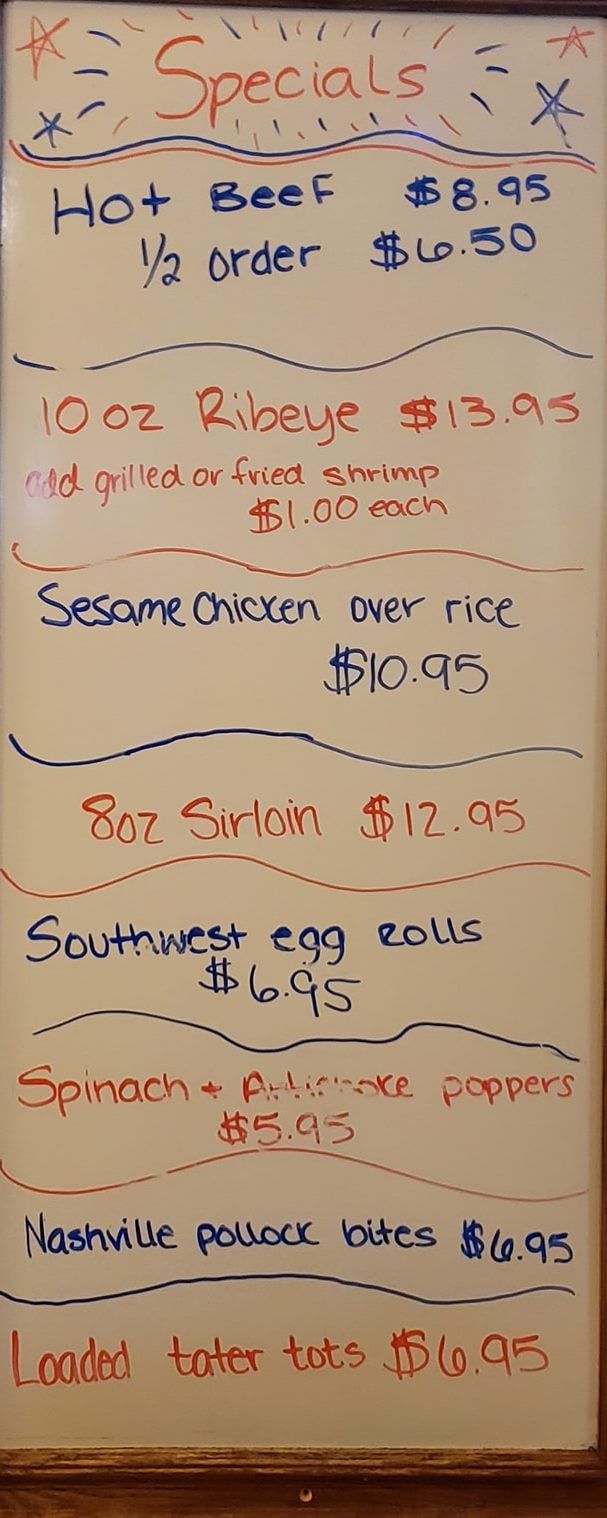 Specials
Hot Beef $8.95
1/2 order $6.50
10 oz Ribeye $13.95
add grilled or fried shrimp
$1.00 each
Sesame Chicken over rice
$10.95
8oz Sirloin $12.95
Southwest egg rolls
$6.95
Spinach + Artichoke poppers
$5.95
Nashville pollock bites $6.95
Loaded tater tots $6.95